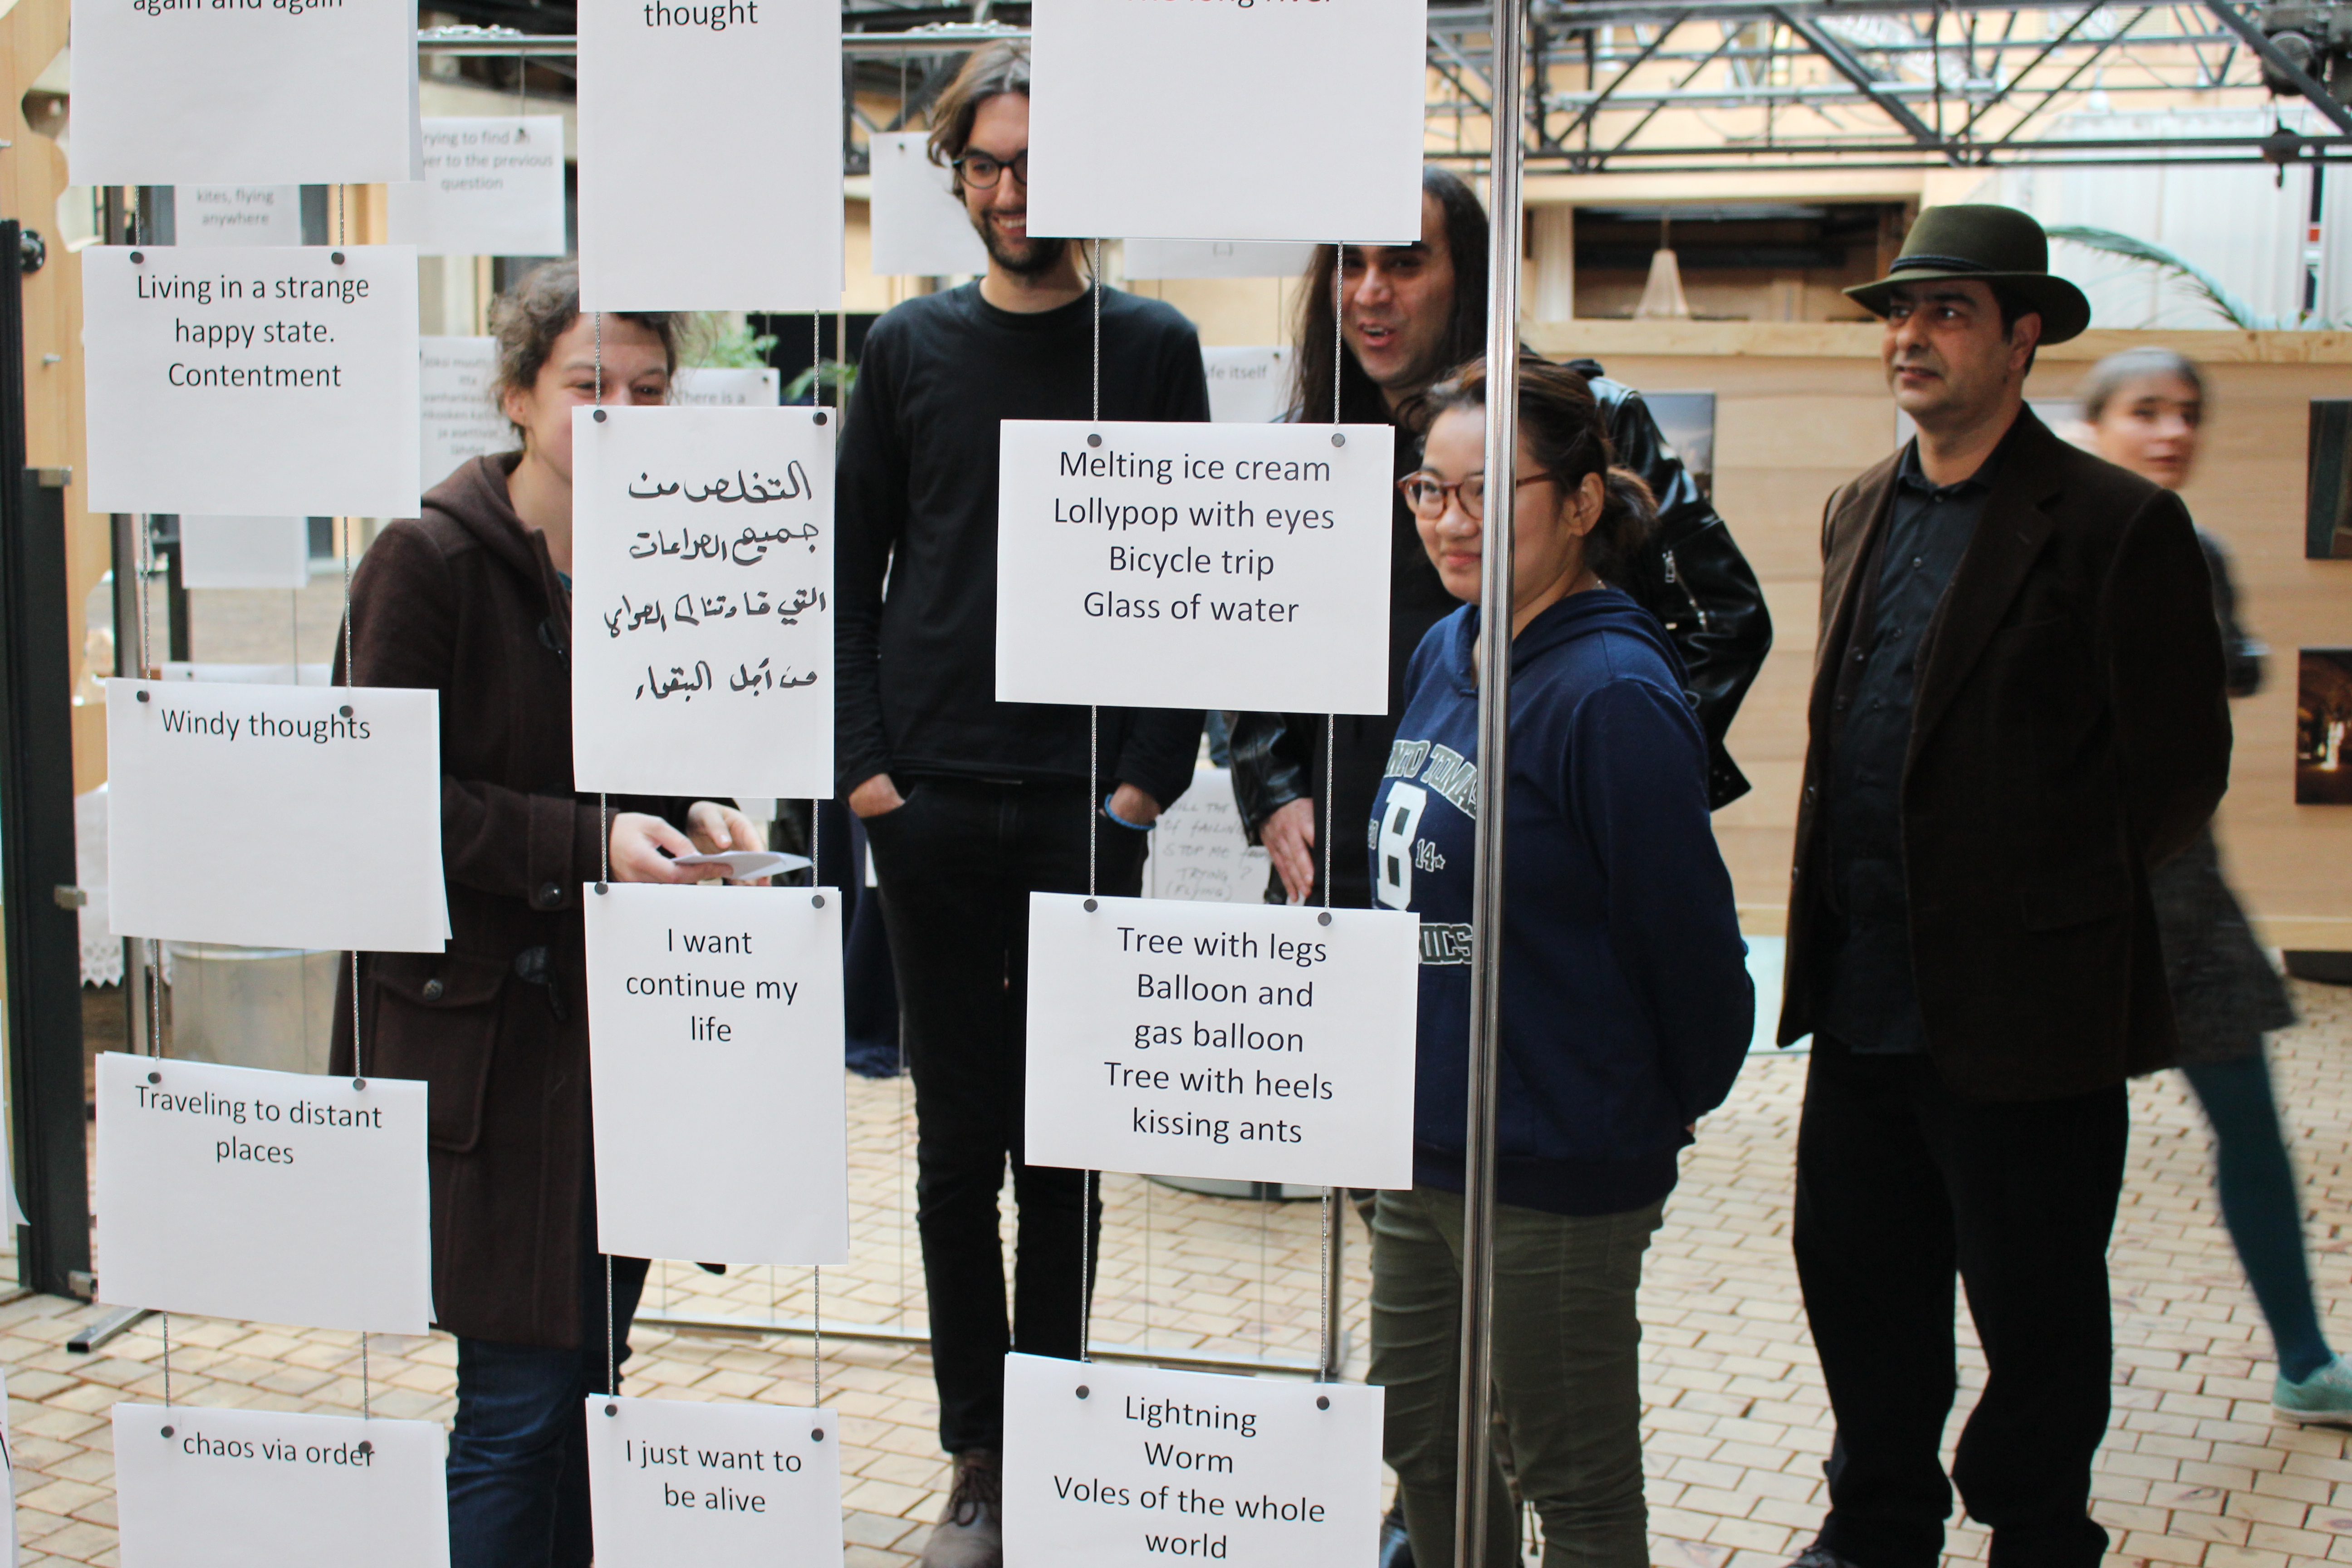 again and again
Living in a strange
happy state.
Contentment
Windy thoughts
Traveling to distant
places
chaos via order
thought
التخلص من
جميع الصراعات
التي قادتنا الى
من أجل البقاء
I want
continue my
life
I just want to
be alive
long river
Melting ice cream
Lollypop with eyes
Bicycle trip
Glass of water
Tree with legs
Balloon and
gas balloon
Tree with heels
kissing ants
Lightning
Worm
Voles of the whole
world
kites, flying
anywhere
to find an
to the previous
question
There is a
itself
(...)
TOMA
B
14
OF FAILING
STOP ME
TRYING ?
(FLYING)